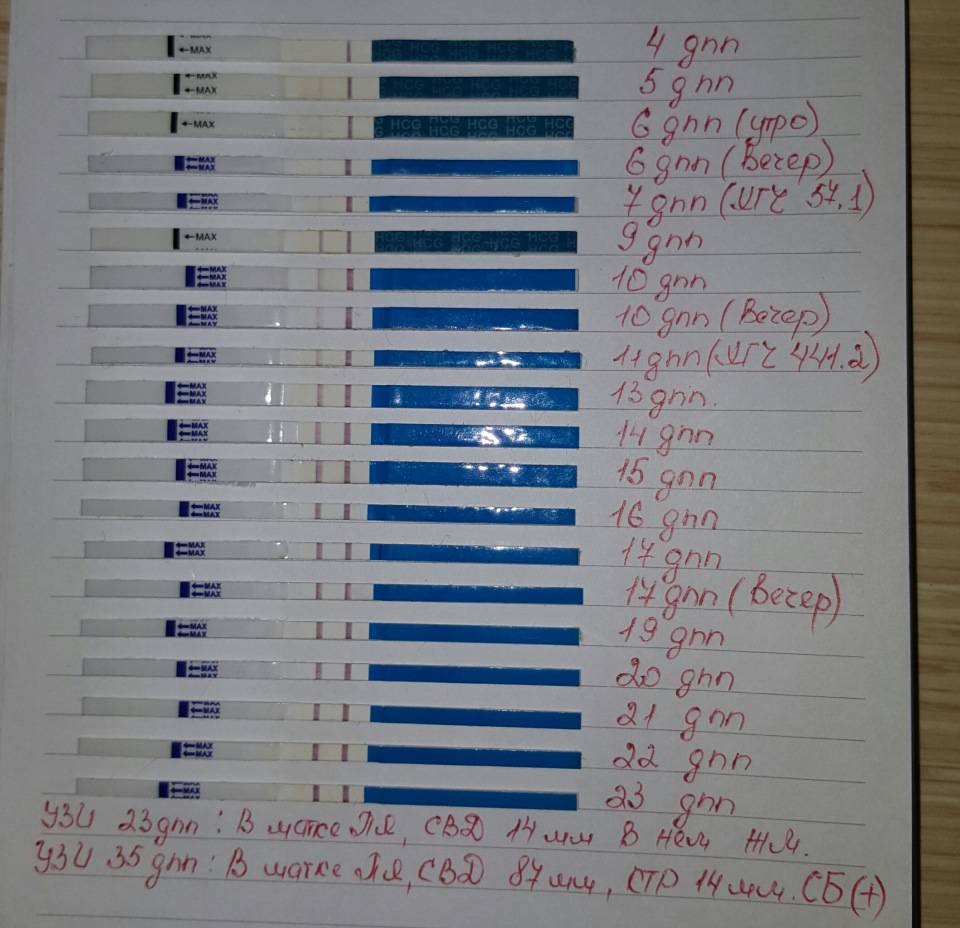 MAX 4 дпп
←MAX HCG HCG HCG
MAX 5 дпп
←MAX
←MAX HCG HCG HCG HCG 6 дпп (утро)
←MAX 6 дпп (Вечер)
←MAX 7 дпп (ХГЧ 57.1)
←MAX HCG HCG HCG 9 дпп
←MAX 10 дпп
←MAX
←MAX
←MAX 10 дпп (Вечер)
←MAX
←MAX 11 дпп (ХГЧ 441.2)
←MAX
←MAX 13 дпп.
←MAX
←MAX
←MAX 14 дпп
←MAX
←MAX 15 дпп
←MAX
←MAX 16 дпп
←MAX
←MAX 17 дпп
←MAX
←MAX 17 дпп (Вечер)
←MAX
←MAX 19 дпп
←MAX
←MAX 20 дпп
←MAX
←MAX 21 дпп
←MAX
←MAX 22 дпп
←MAX
←MAX 23 дпп
УЗИ 23дпп: В матке ПЯ, СВД 14 мм В нем ЖМ.
УЗИ 35 дпп: В матке ПЯ, СВД 87мм, КТР 14 мм. СБ(+)